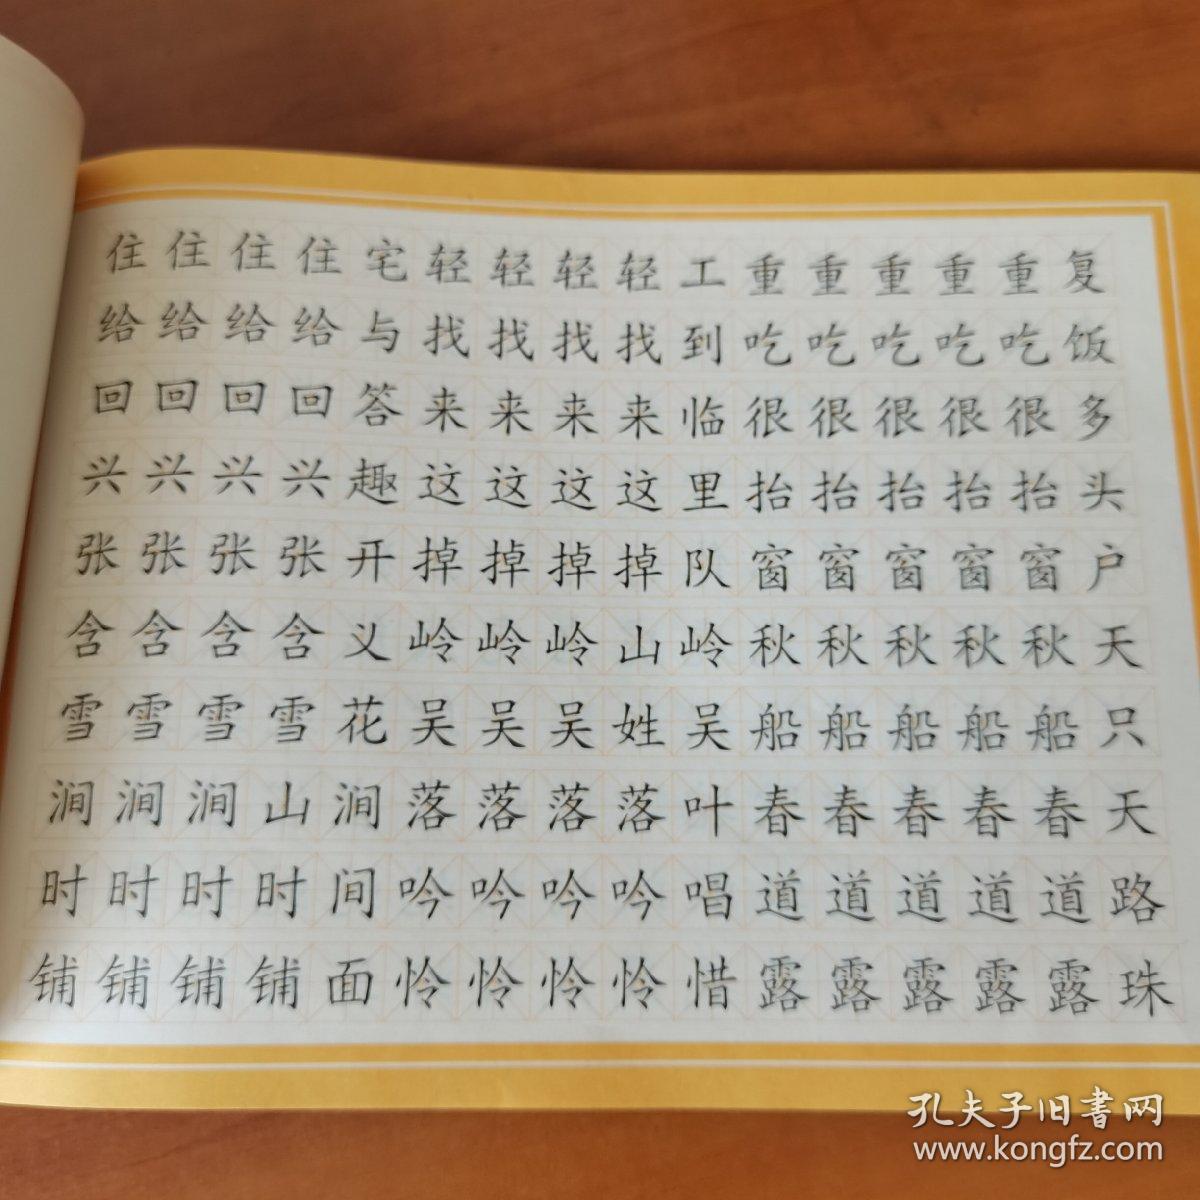 住住住住宅轻轻轻轻工重重重重重复
给给给给与找找找找到吃吃吃吃吃饭
回回回回答来来来来临很很很很很多
兴兴兴兴趣这这这这里抬抬抬抬抬头
张张张张开掉掉掉掉队窗窗窗窗窗户
含含含含义岭岭岭山岭秋秋秋秋秋天
雪雪雪雪花吴吴吴姓吴船船船船船只
涧涧涧山涧落落落落叶春春春春春天
时时时时间吟吟吟吟唱道道道道道路
铺铺铺铺面怜怜怜怜惜露露露露露珠
孔夫子旧書网
www.kongfz.com